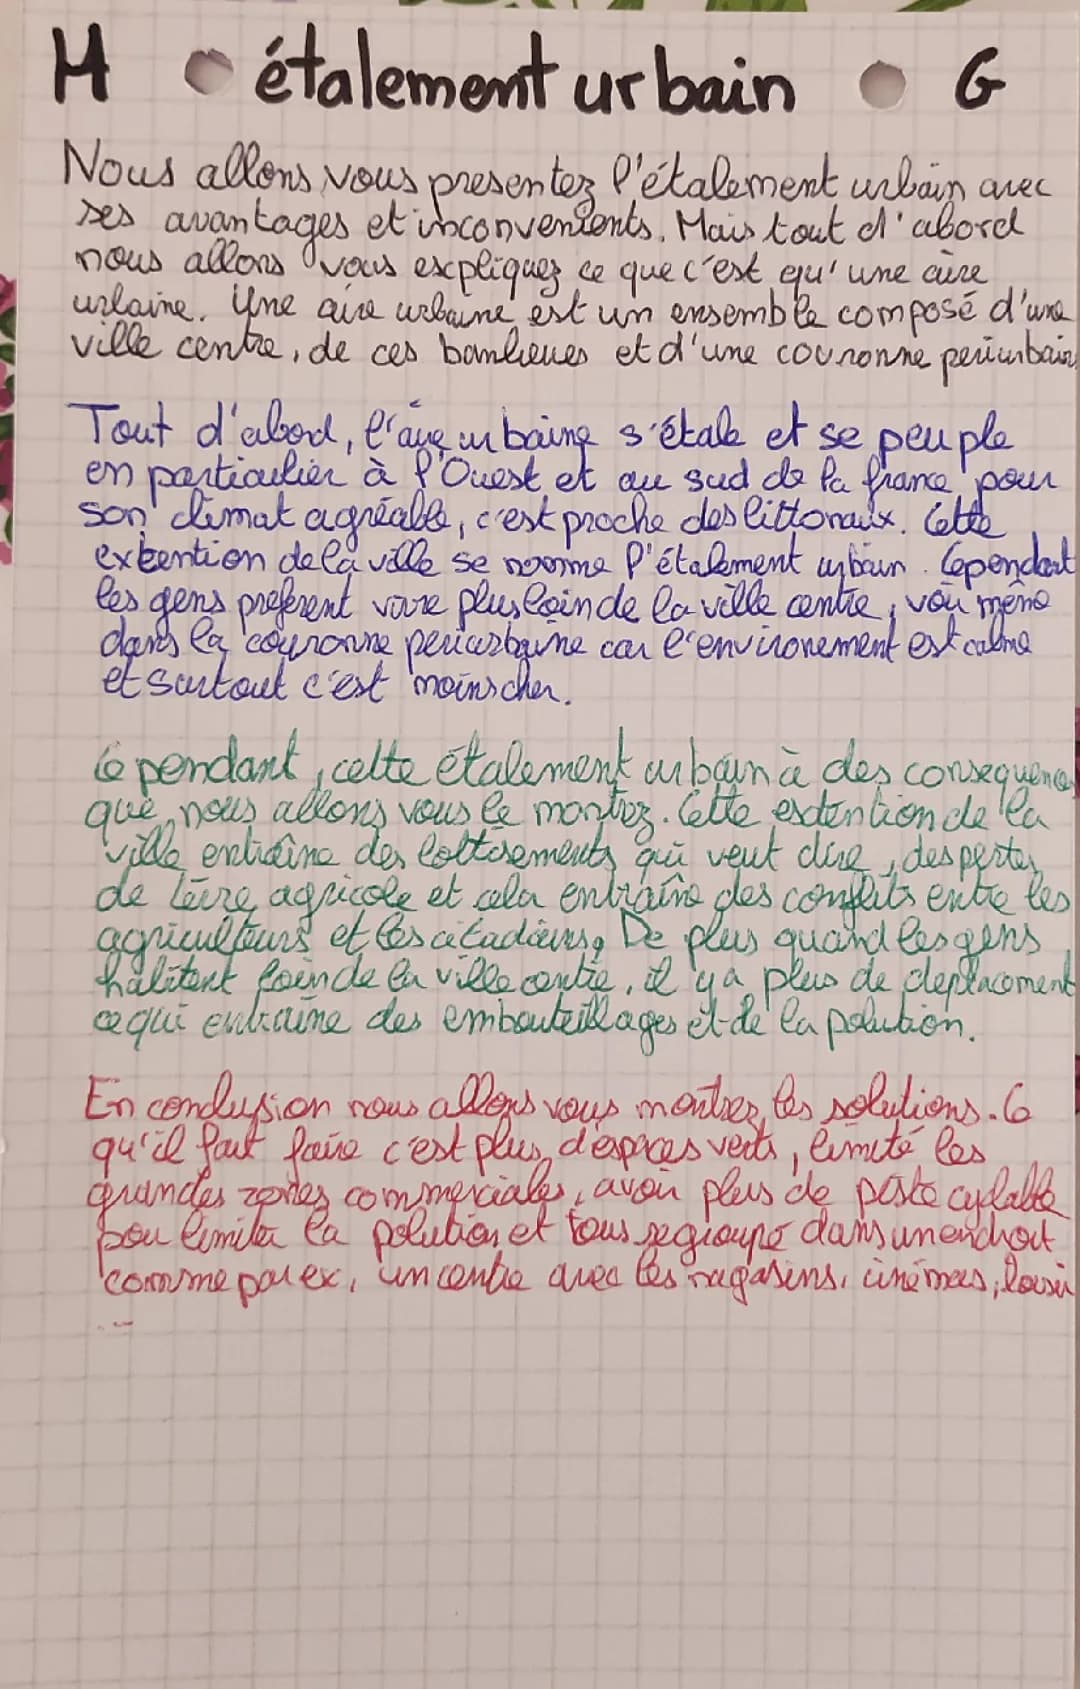 H étalement urbain G
Nous allons vous presentez l'étalement urbain avec
ses avantages et inconvenients. Mais tout d'abord
nous allons vous expliquez ce que c'est qu'une aire
urbaine. Une aire urbaine est un ensemble composé d'une
ville centre, de ces banlieues et d'une couronne periurbain
Tout d'abord, l'aire urbaine s'étale et se peuple
en particulier à l'Ouest et au sud de la france pour
son climat agréable, c'est proche des littoraux. Cette
extention de la ville se nomme l'étalement urbain. Cependant
les gens preferent vivre plus loin de la ville centre, voir même
dans la couronne periurbaine car l'environement est calme
et surtout c'est moins cher.
Cependant, cette étalement urbain à des consequence
que nous allons vous le montrez. Cette extention de la
ville entraîne des lottisements qui veut dire, des pertes
de terre agricole et cela entraîne des conflits entre les
agriculteurs et les citadains. De plus quand les gens
habitent loin de la ville centre, il y a plus de deplacement
ce qui entraine des embouteillages et de la polution.
En conclusion nous allons vous montrez les solutions. Ce
qu'il faut faire c'est plus d'espaces verts, limité les
grandes zones commerciales, avoir plus de piste cyclable
pou limiter la polution et tous regroupé dans un endroit
comme par ex, un centre avec les magasins, cinémas, loisir
...